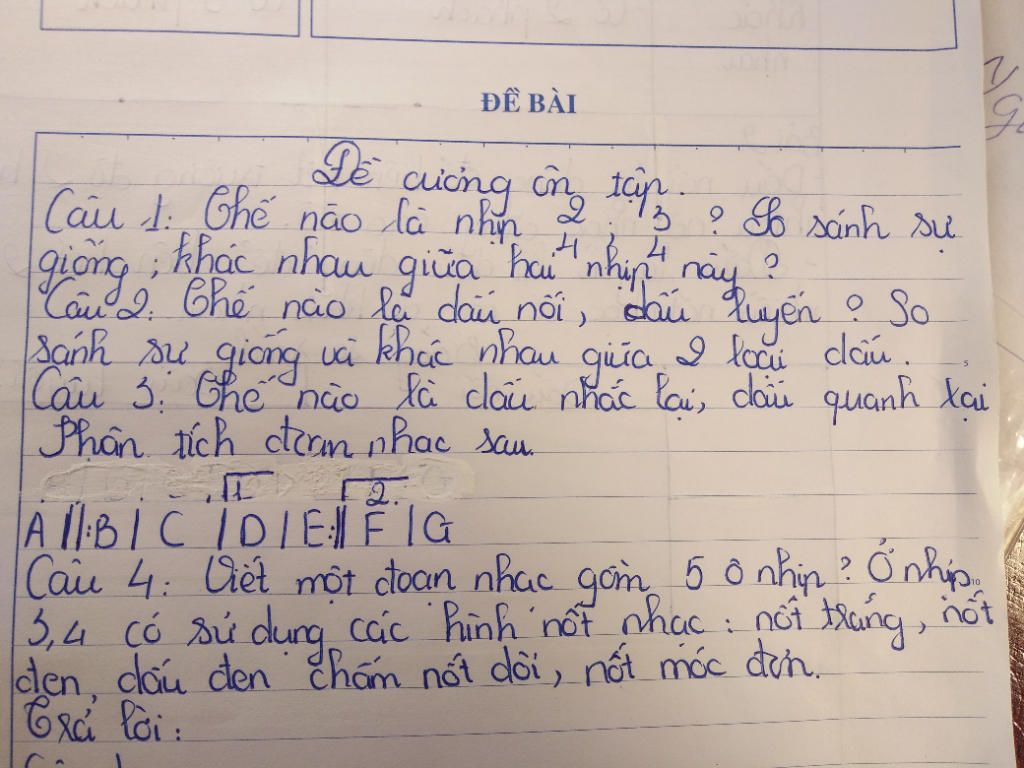 ĐỀ BÀI
Đề cương ôn tập.
Câu 1: Thế nào là nhịp 2/4; 3/4? So sánh sự
giống; khác nhau giữa hai nhịp này?
Câu 2: Thế nào là dấu nối, dấu luyến? So
sánh sự giống và khác nhau giữa 2 loại dấu.
Câu 3: Thế nào là dấu nhắc lại, dấu quanh lại
Phân tích đoạn nhạc sau.
1. 2.
A ||:B | C | D | E:|| F | G
Câu 4: Viết một đoạn nhạc gồm 5 ô nhịp? Ở nhịp
3,4 có sử dụng các hình nốt nhạc: nốt trắng, nốt
đen, dấu đen chấm nốt dôi, nốt móc đơn.
Trả lời: